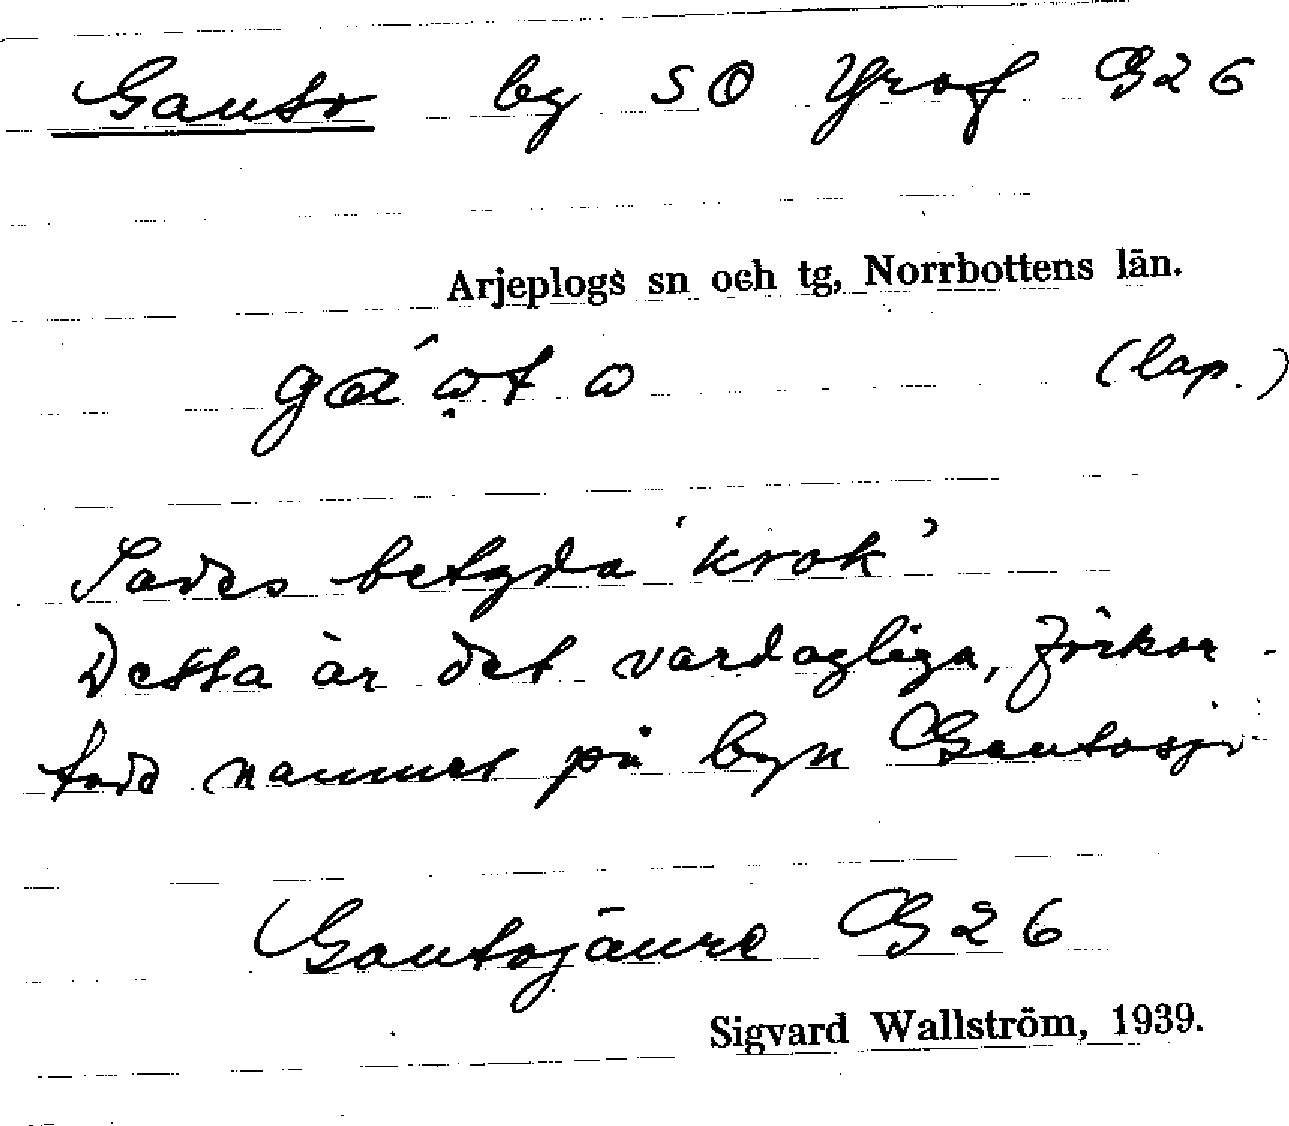 Gauto by SO Graf G26
Arjeplogs sn och tg, Norrbottens län.
(lap.)
Sades betyda 'krok'
Detta är det vardagliga, förkor-
tade namnet på byn Gautosjö
Gautojáure G26
Sigvard Wallström, 1939.